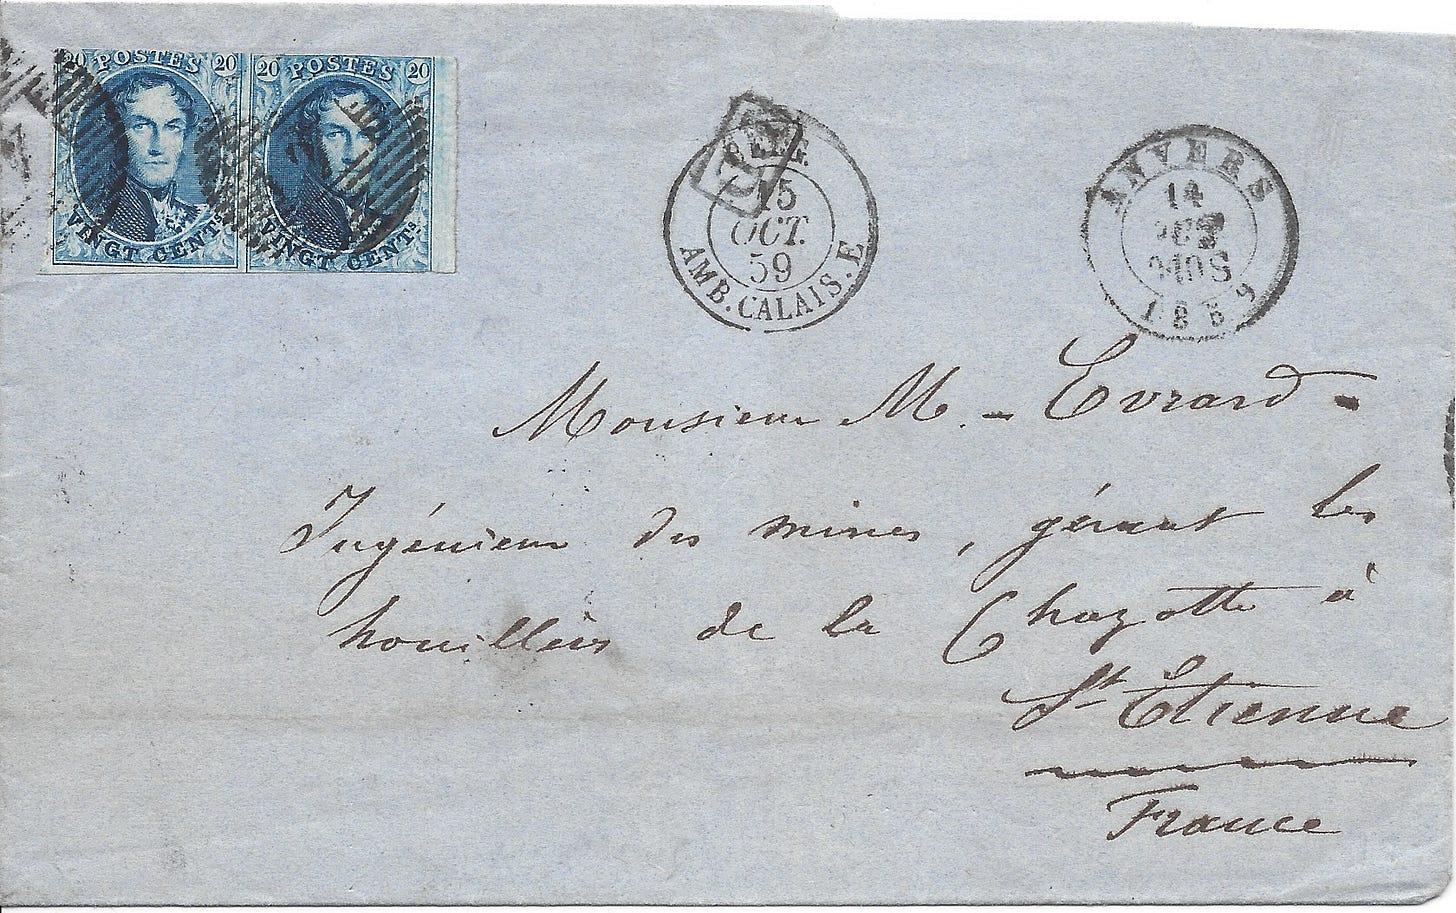 20 POSTES 20
VINGT CENTS
20 POSTES 20
VINGT CENTS
PD
BELG.
15
OCT.
59
AMB. CALAIS. E
ANVERS
14
OCT
10S
1859
Monsieur M. - Evrard -
Ingénieur des mines, gérant les
houillères de la Chazotte à
St Étienne
France